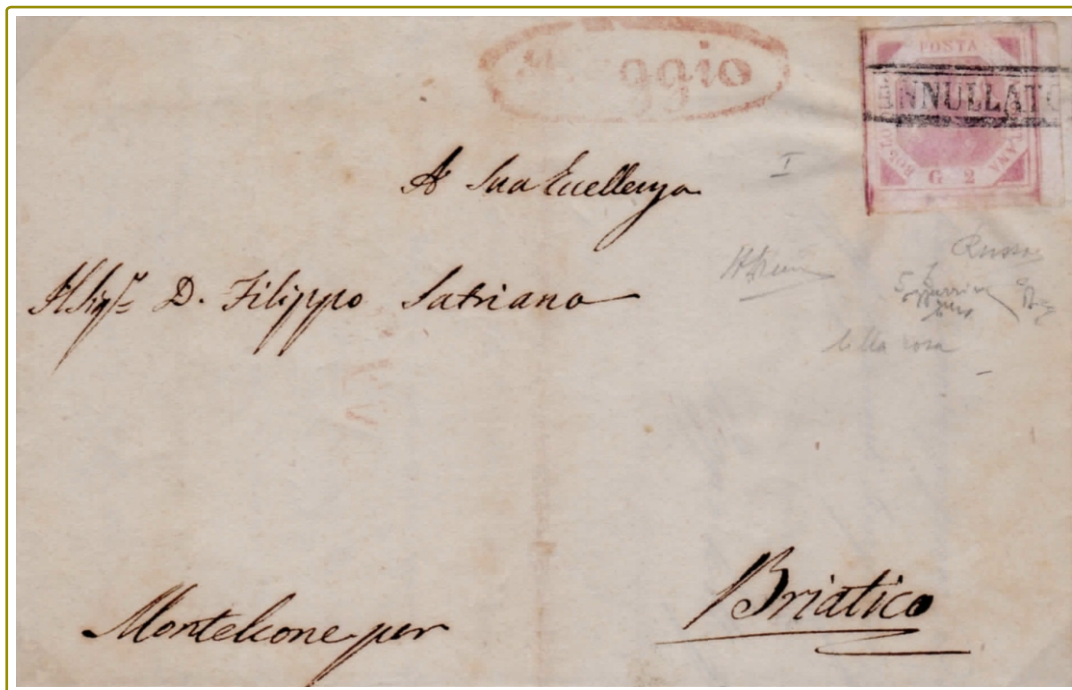 ggio
POSTA
NNULLATO
G 2
I
A Sua Eccellenza
D. Filippo Satriano
Russo
lilla rosa
Monteleone per
Briatico